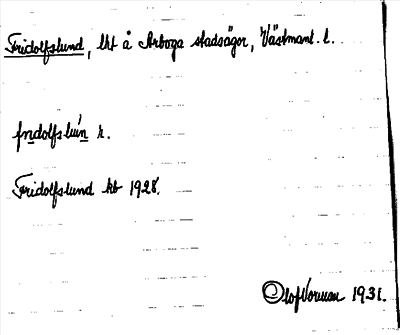 Fridolfslund, lht å Arboga stadsägor, Västmanl. l.
fridolfsluǹn r.
Fridolfslund kb 1928.
Olof Norman 1931.